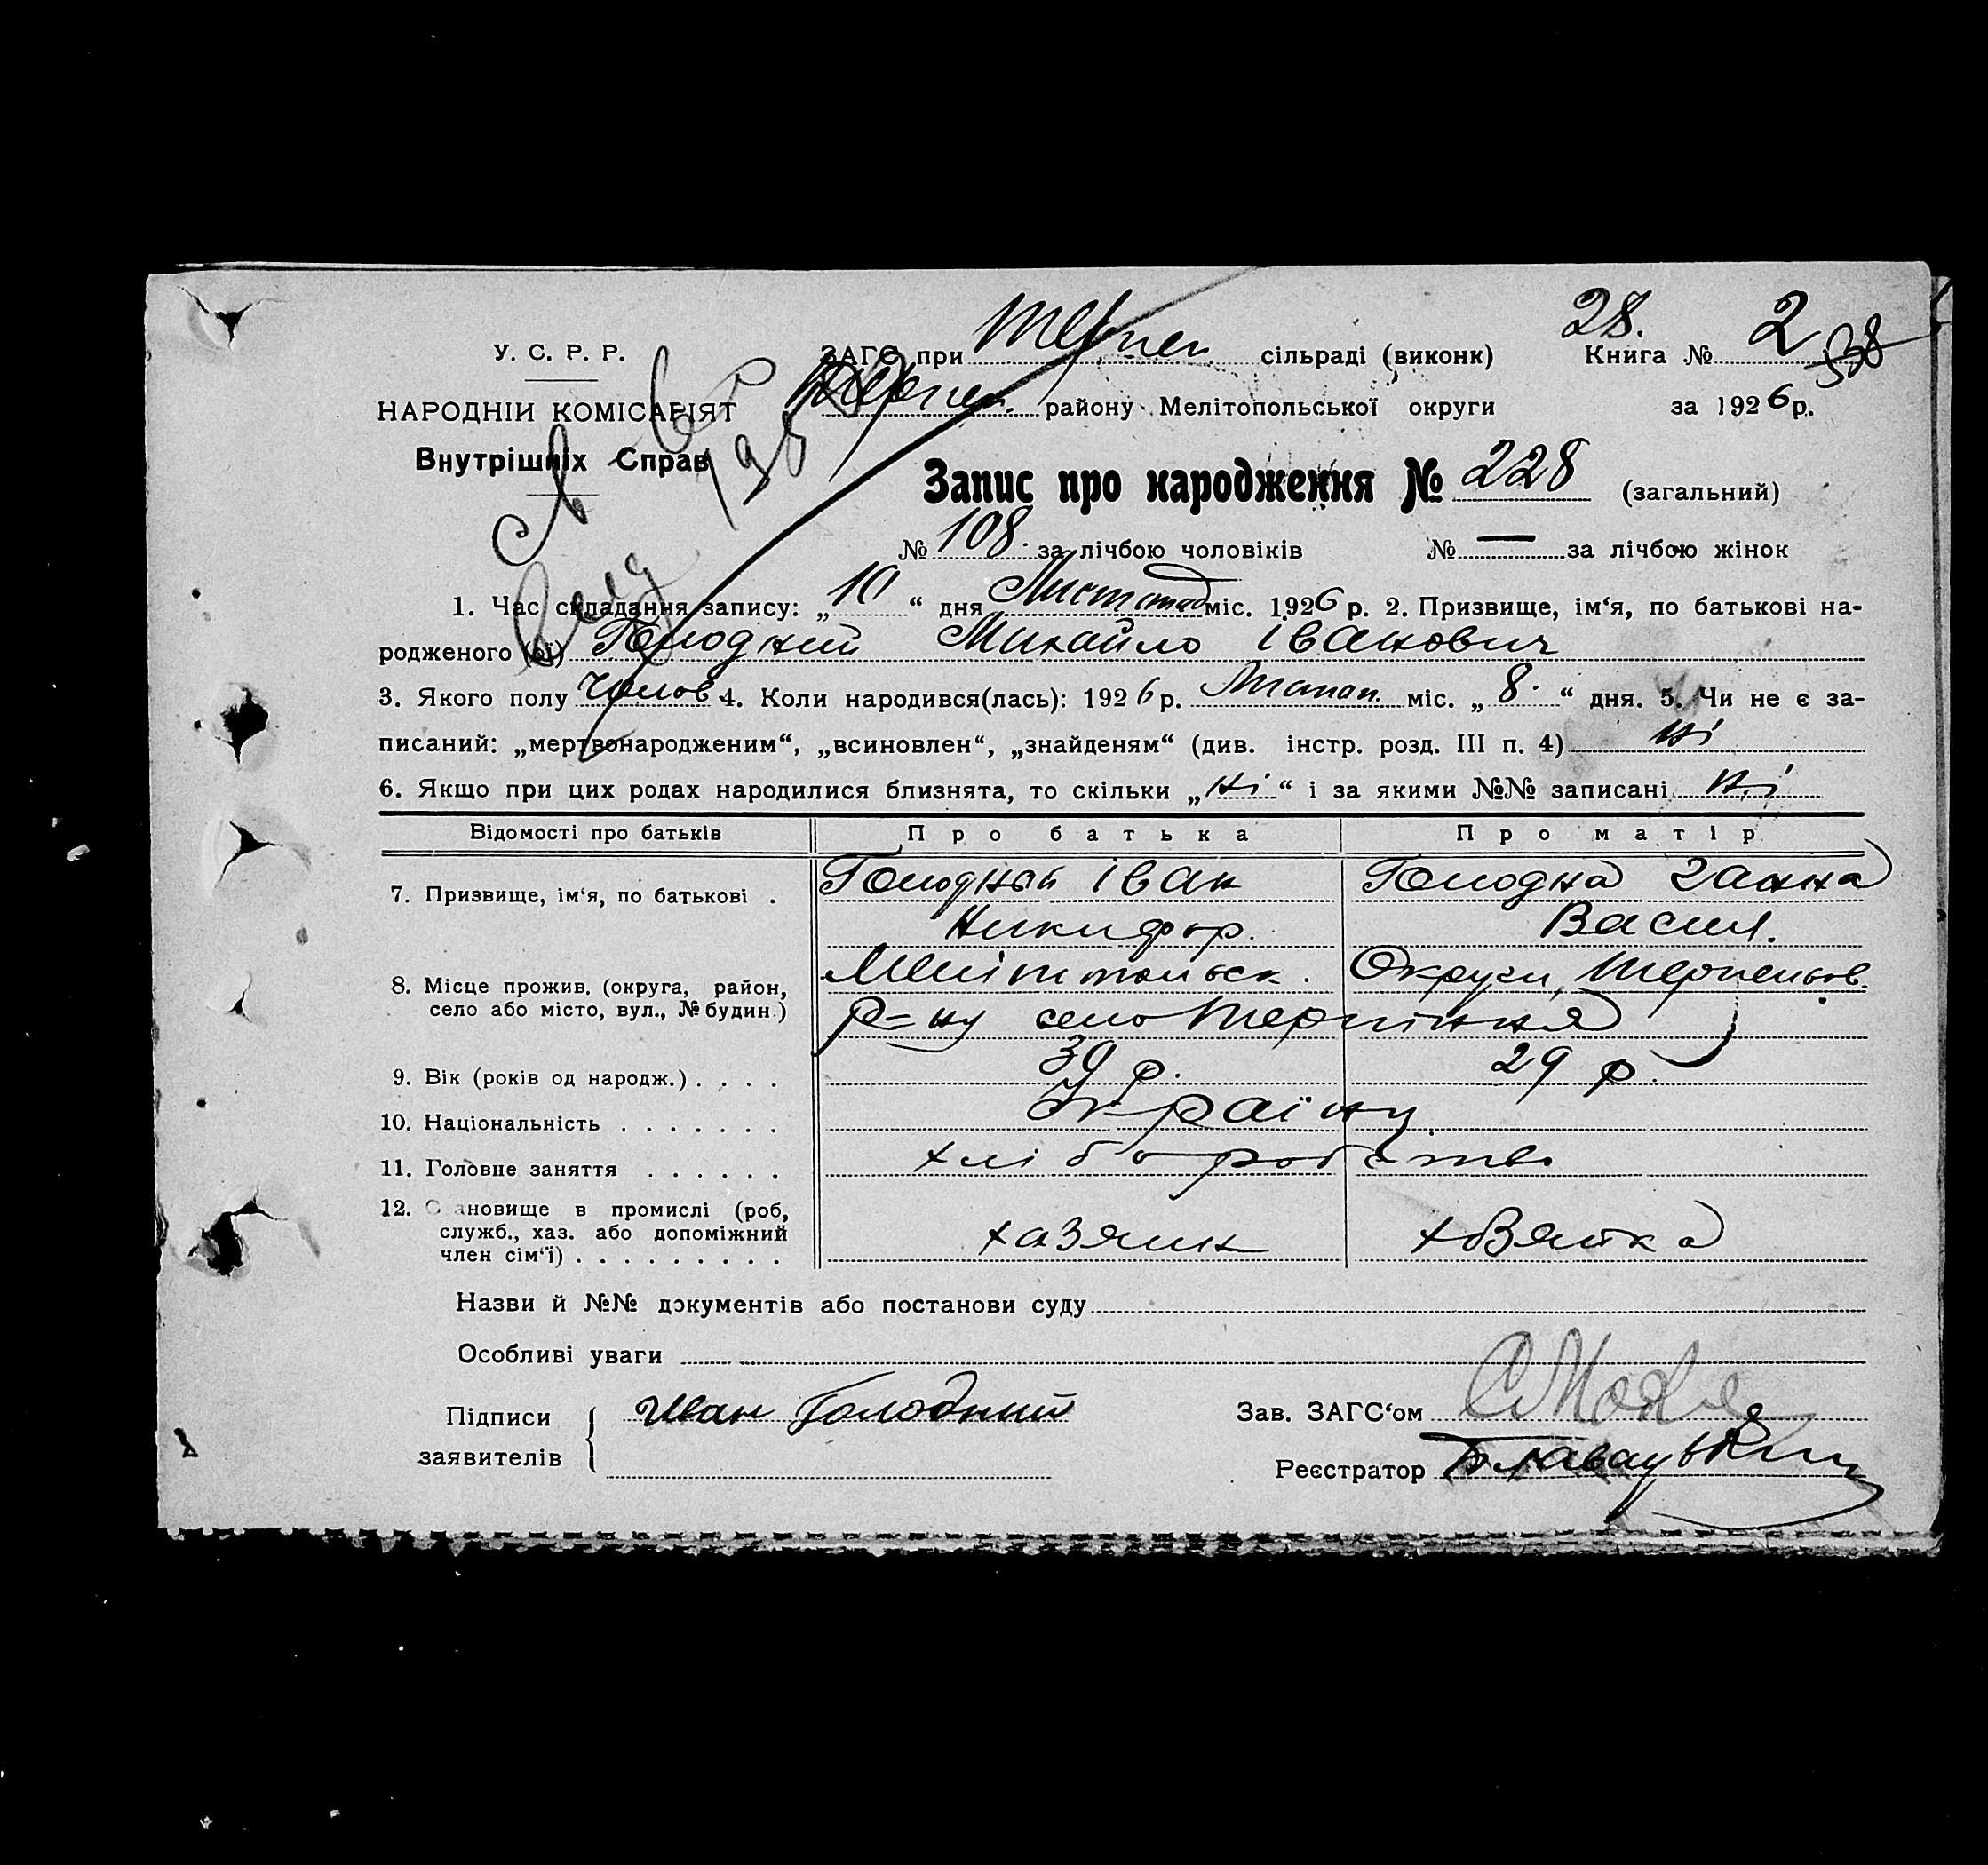 28.
У. С. Р. Р.
ЗАГС при Терпен. сільраді (виконк) Книга № 2
538
НАРОДНІЙ КОМІСАРІЯТ
Терпен. району Мелітопольської округи за 1926 р.
Внутрішніх Справ
Запис про народження № 228 (загальний)
№ 108. за лічбою чоловіків № — за лічбою жінок
1. Час складання запису: „10“ дня Листопад міс. 1926 р. 2. Призвище, ім‘я, по батькові на-
родженого (ої) Голодний Михайло Іванович
3. Якого полу Чолов. 4. Коли народився(лась): 1926 р. Листоп. міс. „8.“ дня. 5. Чи не є за-
писаний: „мертвонародженим“, „всиновлен“, „знайденям“ (див. інстр. розд. III п. 4) ні
6. Якщо при цих родах народилися близнята, то скільки „ні“ і за якими №№ записані ні
Відомості про батьків Про батька Про матір
7. Призвище, ім‘я, по батькові . Голодний Іван Голодна Ганна
Никифор. Васил.
8. Місце прожив. (округа, район, село або місто, вул., № будин.) Мелітопольск. Округи, Терпеньов.
р-ну село Терпіння
9. Вік (років од народж.) . . . . 30 р. 29 р.
10. Національність . . . . . . . Україн.
11. Головне заняття . . . . . . хліборобство
12. Становище в промислі (роб,
служб., хаз. або допоміжний
член сім‘ї) . . . . . . . . . хазяин хазяйка
Назви й №№ документів або постанови суду
Особливі уваги
Підписи Иван Голодний Зав. ЗАГС‘ом
заявителів Реєстратор